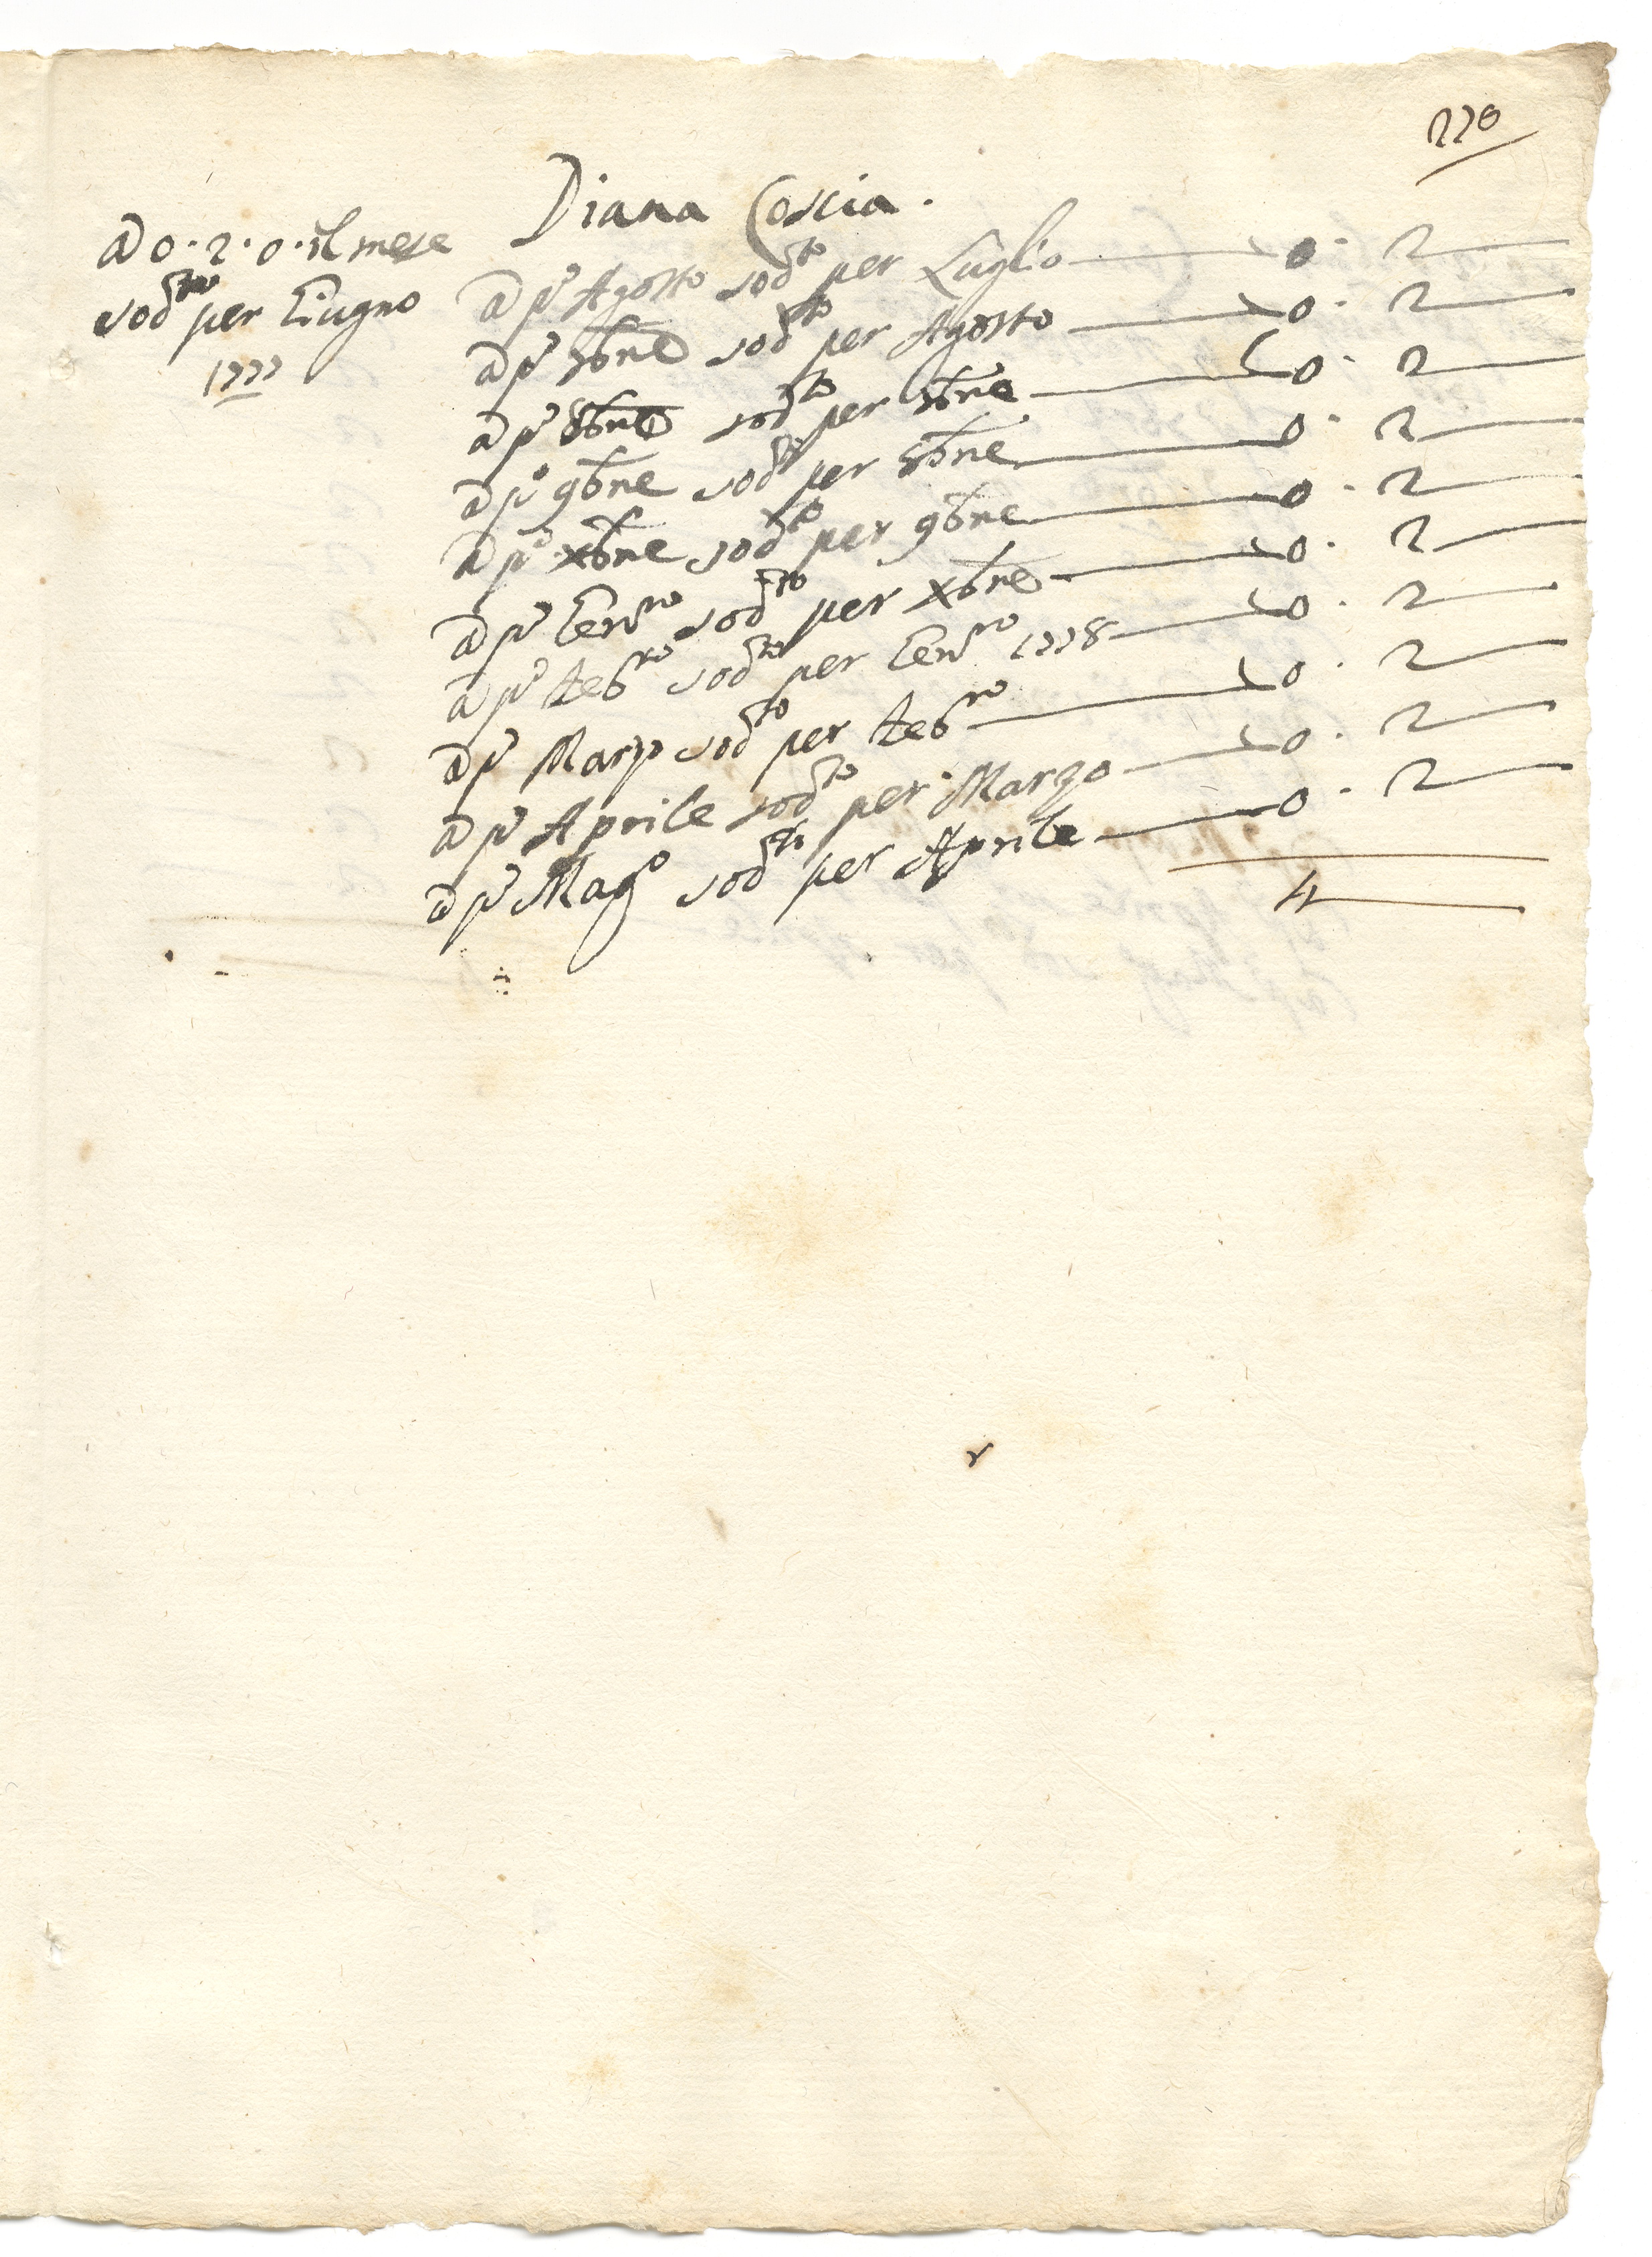 220
Diana Coscia.
a D 0.2.0. il mese
sod.to per Giugno
1777
a p.o Agosto sod.to per Luglio — 0. 2 —
a p.o 7bre sod.to per Agosto — 0. 2 —
a p.o 8bre sod.to per 7bre — 0. 2 —
a p.o 9bre sod.to per 8bre — 0. 2 —
a p.o Xbre sod.to per 9bre — 0. 2 —
a p.o Gen.ro sod.to per Xbre — 0. 2 —
a p.o feb.ro sod.to per Gen.ro 1778 — 0. 2 —
a p.o Marzo sod.to per feb.ro — 0. 2 —
a p.o Aprile sod.to per Marzo — 0. 2 —
a p.o Mag.o sod.to per Aprile — 0. 2 —
4 —